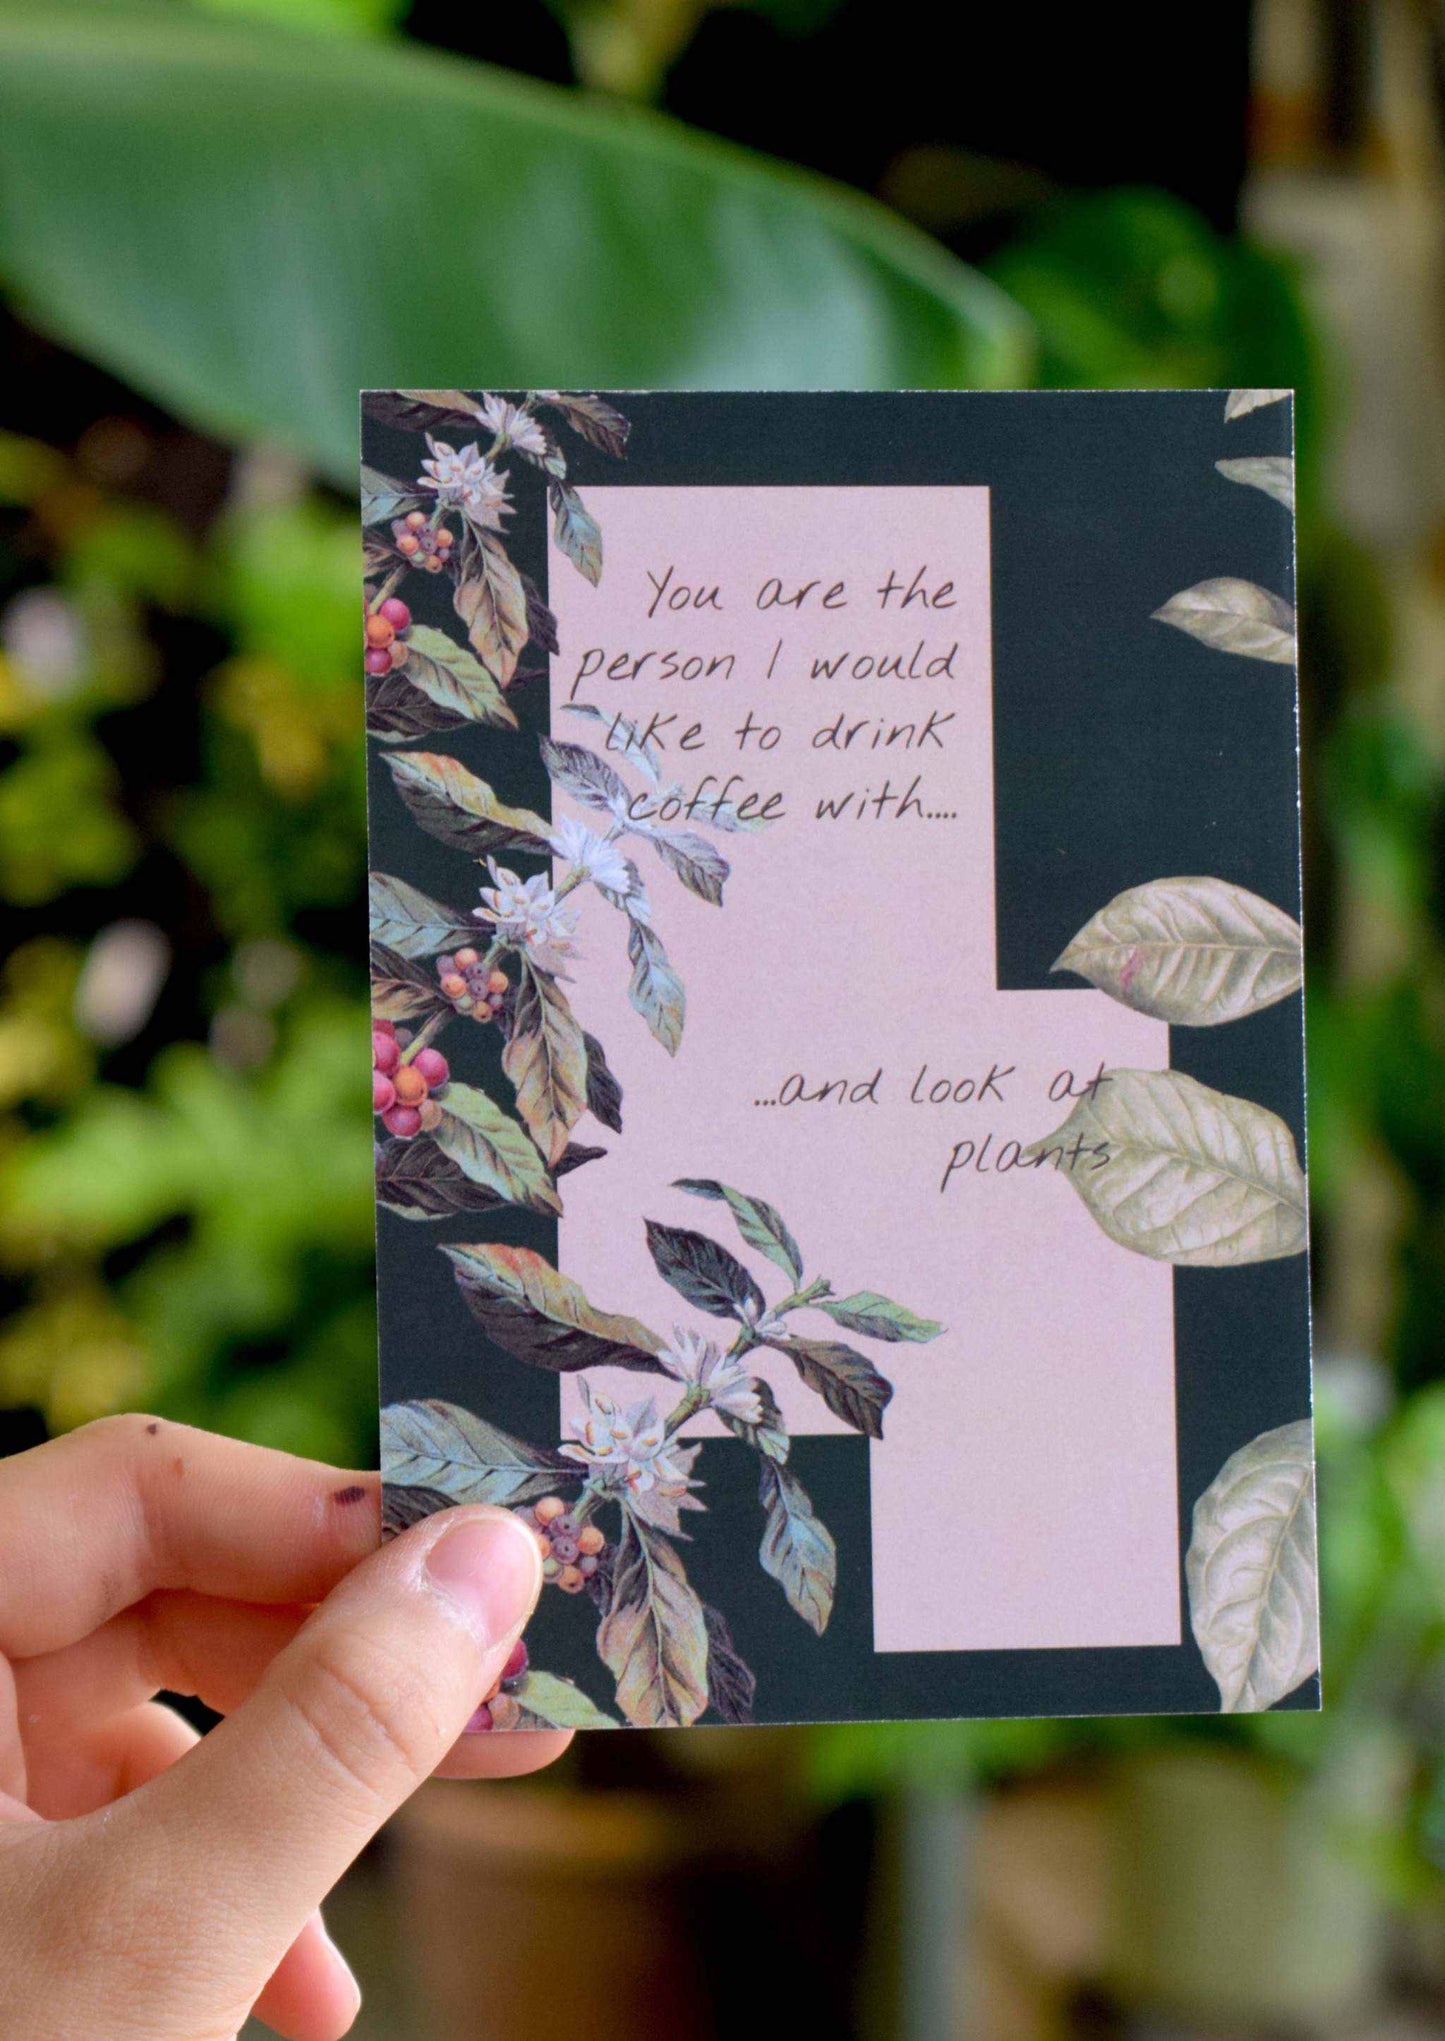 You are the
person I would
like to drink
coffee with....
...and look at
plants